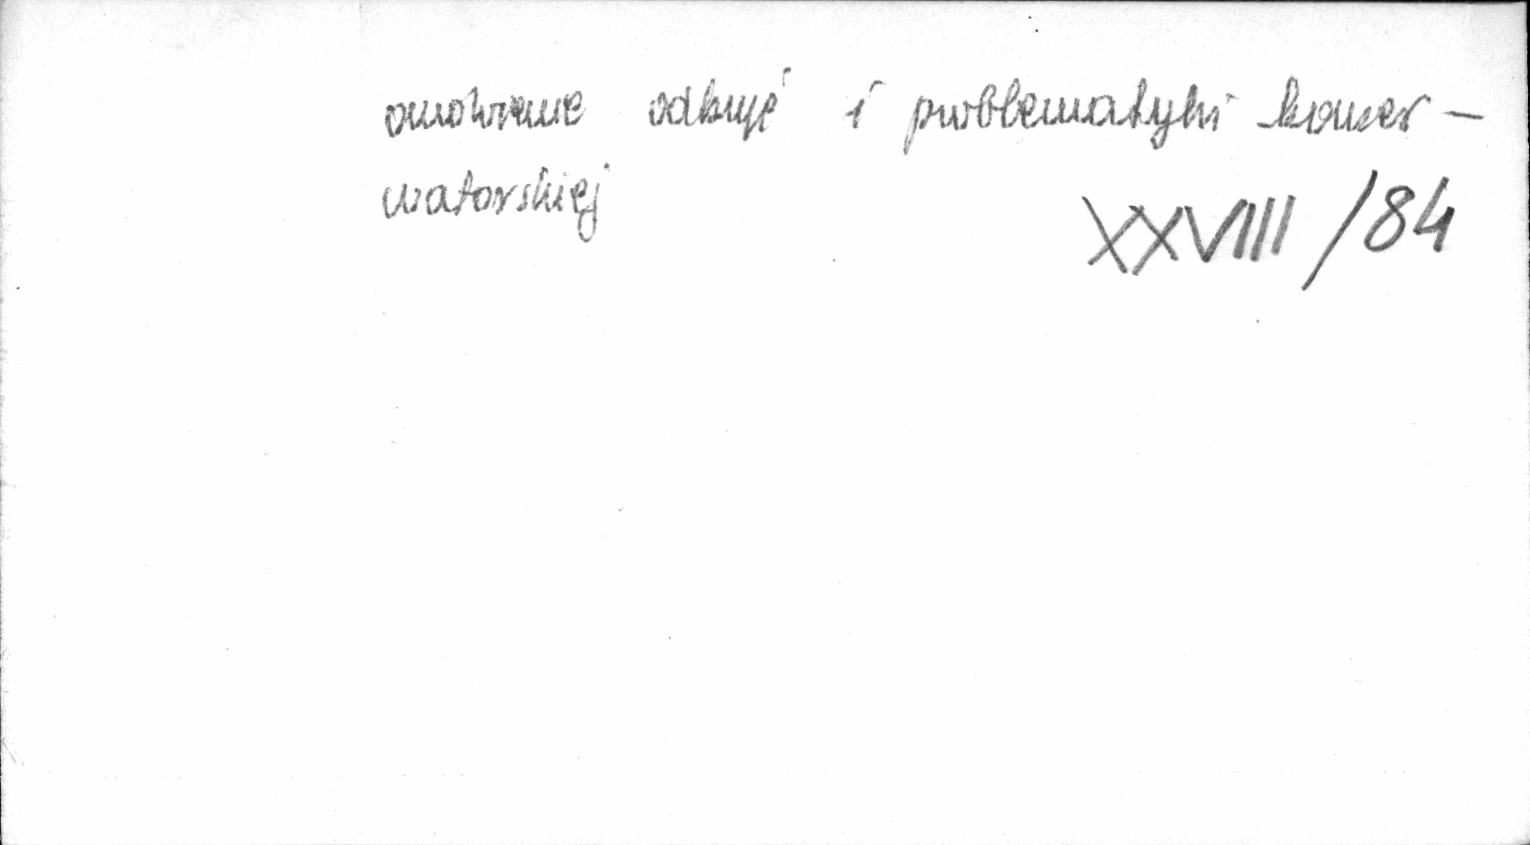 omówienie odkryć i problematyki konser-
watorskiej
XXVIII/84